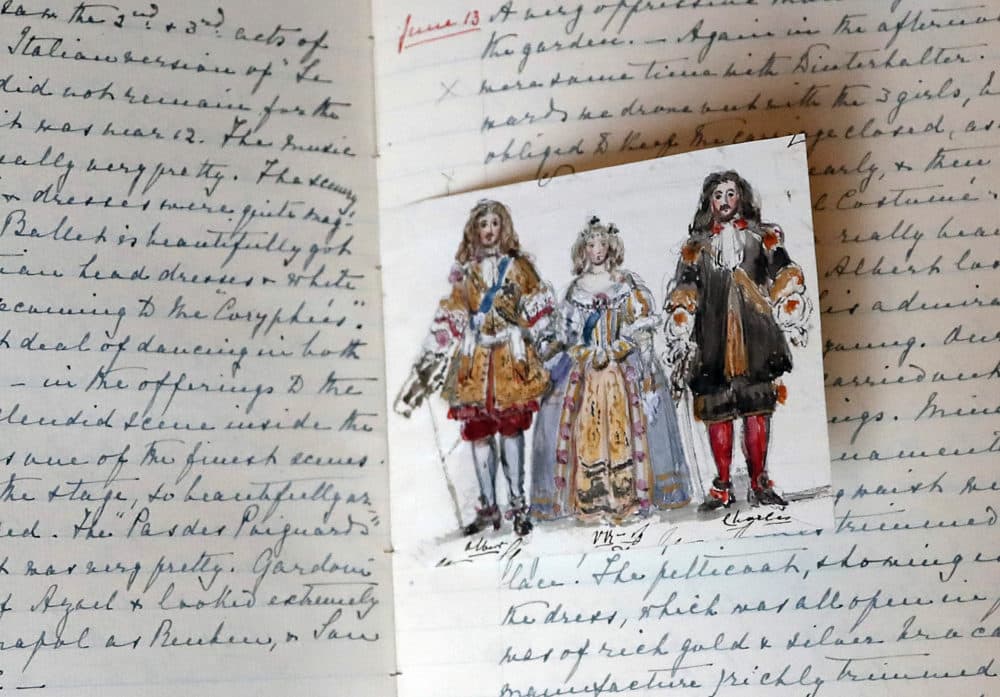 saw the 2nd. & 3rd. acts of
Italian version of "Le
did not remain for the
it was near 12. The music
really very pretty. The scenery
& dresses were quite mag-
Ballet is beautifully got
head dresses & white
becoming to the "Coryphées".
t deal of dancing in both
— in the offerings to the
splendid scene inside the
s one of the finest scenes
the stage, so beautifully ar-
ed. The "Pas des Poignards"
t was very pretty. Gardoni
f Azael & looked extremely
as Reuben, & San
June 13 A very oppressive
the garden. — Again in the afternoon
were some time with Winterhalter.
wards we drove out with the 3 girls,
obliged to keep the carriage closed, as
early, & then
Costume
really
Albert
is
young. Our
carried out
ings.
naments
waist
Albert
VR
Charles
trimmed
lace. The petticoat, showing
the dress, which was all open in
was of rich gold & silver broca
manufacture richly trimmed